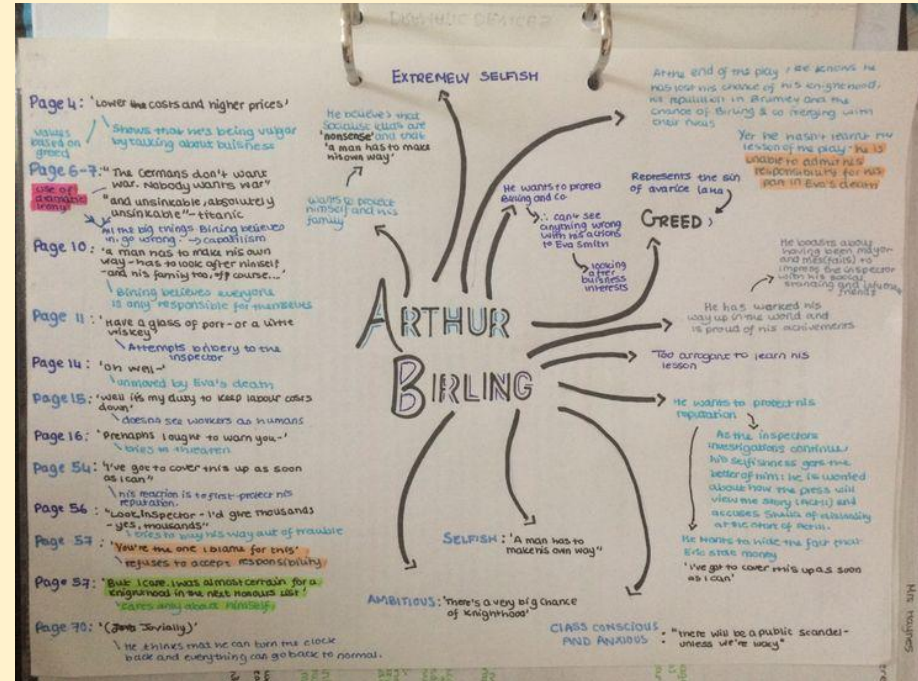 DRAMATIC DEVICES
Page 4: 'Lower the costs and higher prices'
values
based on
greed
Shows that he's being vulgar
by talking about buisness
Page 6-7: "The Germans don't want
war. Nobody wants war"
use of
dramatic
irony!
"and unsinkable, absolutely
unsinkable" - titanic
All the big things Birling believes
in go wrong: → capatilism
Page 10: 'a man has to make his own
way - has to look after himself
- and his family too, off course...'
Birling believes everyone
is only responsible for themselves
Page 11: 'Have a glass of port - or a little
wiskey'
Attempts bribery to the
inspector
Page 14: 'Oh well -'
unmoved by Eva's death
Page 15: 'Well it's my duty to keep labour costs
down'
doesn't see workers as humans
Page 16: 'Prehaphs I ought to warn you -'
tries to threaten
Page 54: 'I've got to cover this up as soon
as I can"
his reaction is to first-protect his
reputation.
Page 56: "Look, Inspector - I'd give thousands
- yes, thousands"
tries to buy his way out of trouble
Page 57: 'You're the one I blame for this'
refuses to accept responsibility
Page 57: 'But I care. I was almost certain for a
knighthood in the next honours list'
cares only about himself.
Page 70: '( Jovially)'
He thinks that he can turn the clock
back and everything can go back to normal.
ARTHUR
BIRLING
EXTREMELY SELFISH
He believes that
Socialist ideas are
'nonsense' and that
'a man has to make
his own way'
wants to protect
himself and his
family
He wants to protect
Birling and Co.
∴ can't see
anything wrong
with his actions
to Eva Smith
looking
after
buisness
interests
At the end of the play, he knows he
has lost his chance of his knighthood,
his reputation in Brumley and the
chance of Birling & co merging with
their rivals
Yet he hasn't learnt the
lesson of the play - he is
unable to admit his
responsibility for his
part in Eva's death
Represents the sin
of avarice (aka
GREED)
He boasts about
having been mayor
and to
impress the inspector
with his social
standing and influential
friends
He has worked his
way up in the world and
is proud of his achivements
Too arrogant to learn his
lesson
He wants to protect his
reputation
As the inspectors
investigations continue,
his selfishness gets the
better of him: he is worried
about how the press will
view the story (Act II) and
accuses Sheila of disloyalty
at the start of Act III.
He wants to hide the fact that
Eric stole money
'I've got to cover this up as soon
as I can'
SELFISH: 'A man has to
make his own way"
AMBITIOUS: 'There's a very big chance
of knighthood'
CLASS CONSCIOUS
AND ANXIOUS: "there will be a public scandel -
unless we're